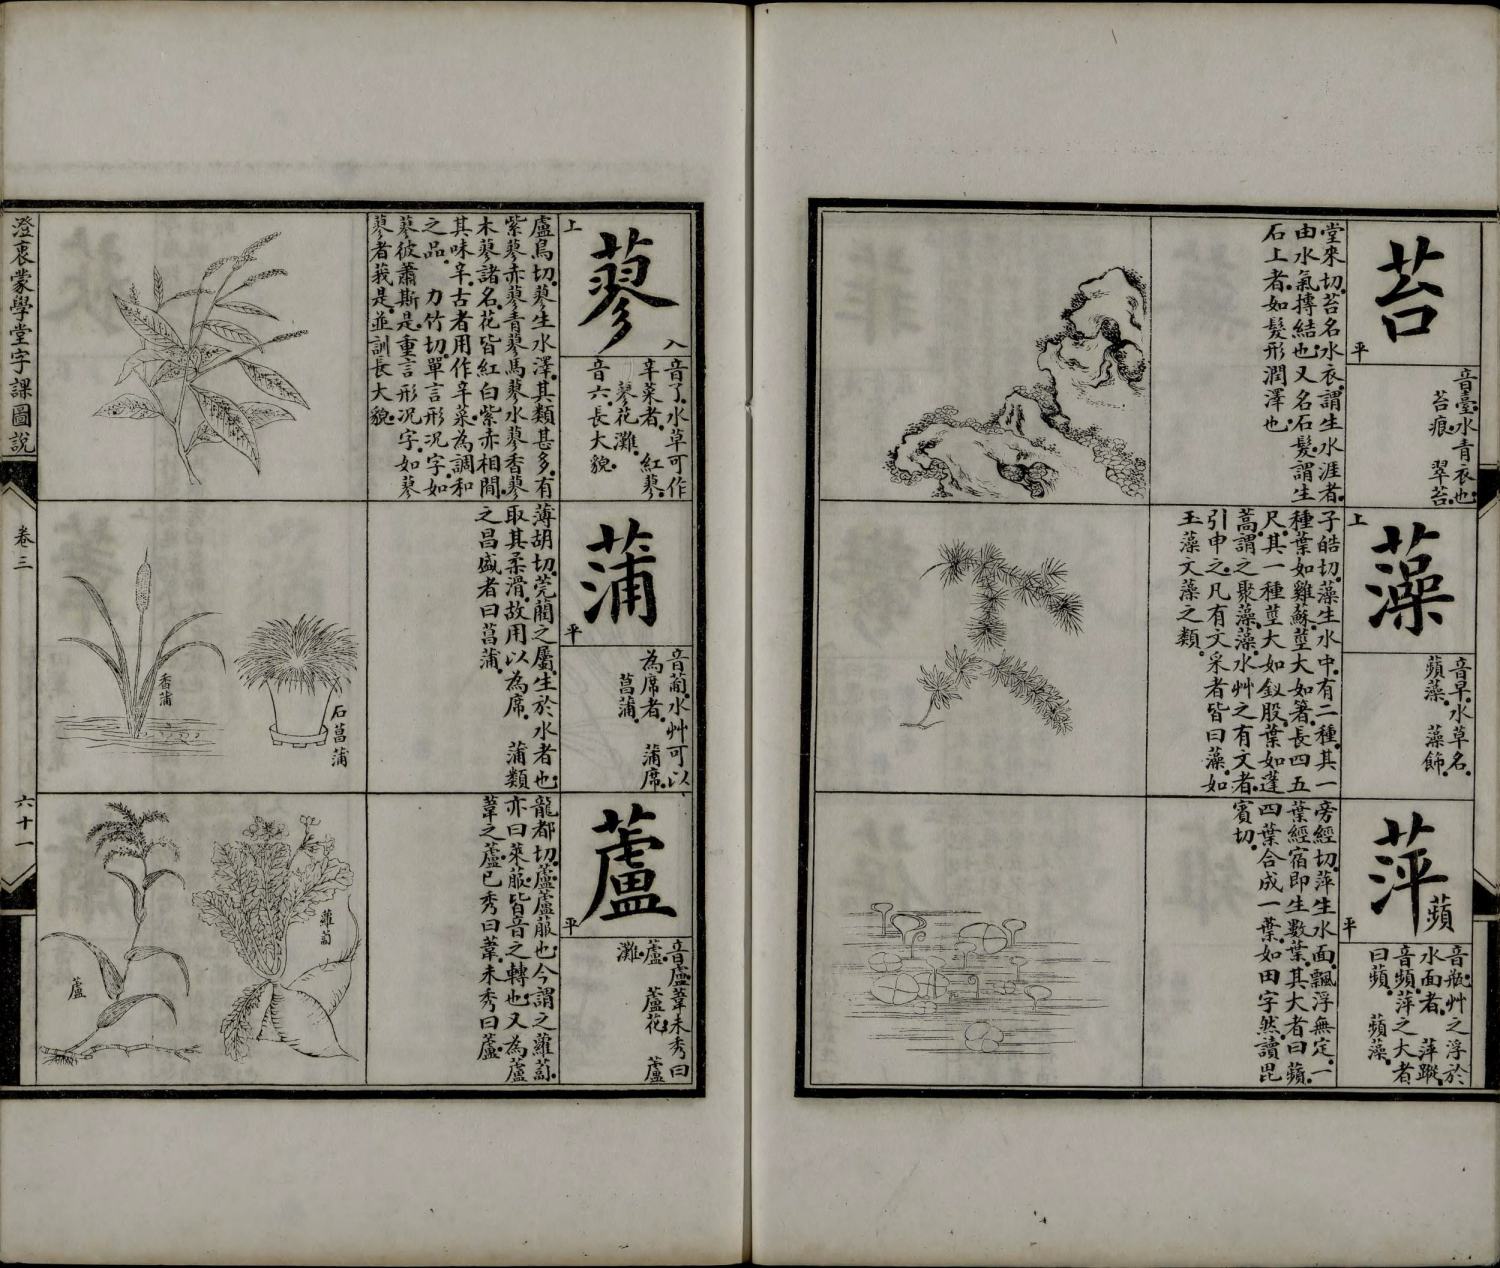 苔
平
音臺.水青衣也.
苔痕. 翠苔.
堂來切.苔名水衣.謂生水涯者.
由水氣摶結也.又名石髮.謂生
石上者.如髮形潤澤也.
藻
上
音早.水草名.
蘋藻. 藻飾.
子皓切.藻生水中.有二種.其一
種葉如雞蘇.莖大如箸.長四五
尺.其一種莖大如釵股.葉如蓬
蒿.謂之聚藻.藻.水艸之有文者.
引申之.凡有文采者皆曰藻.如
玉藻文藻之類.
萍
蘋
平
音瓶.艸之浮於
水面者. 萍蹤.
音頻.萍之大者
曰蘋. 蘋藻.
旁經切.萍生水面.飄浮無定.一
葉經宿即生數葉.其大者曰蘋.
四葉合成一葉.如田字然.讀毘
賓切.
蓼
上
入
音了.水草可作
辛菜者. 紅蓼.
蓼花灘.
音六.長大貌.
盧鳥切.蓼生水澤.其類甚多.有
紫蓼赤蓼青蓼馬蓼水蓼香蓼
木蓼諸名.花皆紅白紫赤相間.
其味辛.古者用作辛菜.為調和
之品. 力竹切.單言形況字.如
蓼彼蕭斯是.重言形況字.如蓼
蓼者莪是.並訓長大貌.
蒲
平
音葡.水艸可以
為席者. 蒲席.
菖蒲.
薄胡切.莞藺之屬.生於水者也.
取其柔滑.故用以為席. 蒲類
之昌盛者曰菖蒲.
石菖蒲
香蒲
蘆
平
音盧.葦未秀曰
蘆. 蘆花. 蘆
灘.
龍都切.蘆.蘆菔也.今謂之蘿蔔.
亦曰萊菔.皆音之轉也.又為蘆
葦之蘆.已秀曰葦.未秀曰蘆.
蘿蔔
蘆
澄衷蒙學堂字課圖說
卷三
六十一